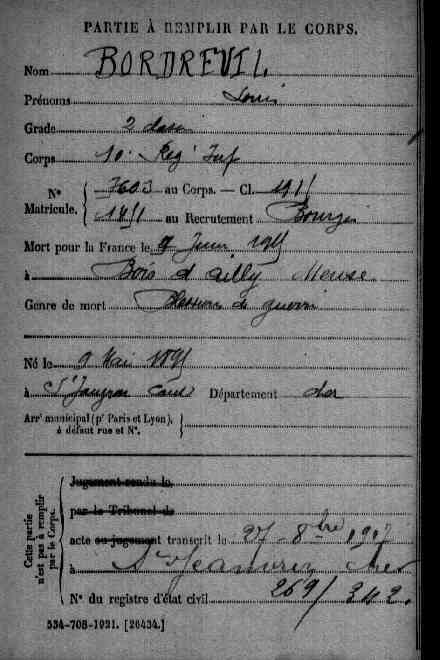 PARTIE À REMPLIR PAR LE CORPS.
Nom BORDREUIL
Prénoms Louis
Grade 2 classe
Corps 10. Reg' Inf
N° Matricule. 7603 au Corps. — Cl. 1911
1451 au Recrutement Bourges
Mort pour la France le 9 Juin 1915
à Bois d'ailly Meuse
Genre de mort Blessures de guerre
Né le 9 Mai 1891
à St Département cher
Arrt municipal (pr Paris et Lyon), à défaut rue et N°.
Cette partie n'est pas à remplir par le Corps.
Jugement rendu le
par le Tribunal de
acte ou jugement transcrit le 27 - 8bre 1917
à Cher
N° du registre d'état civil 269/342.
534-708-1921. [26434.]